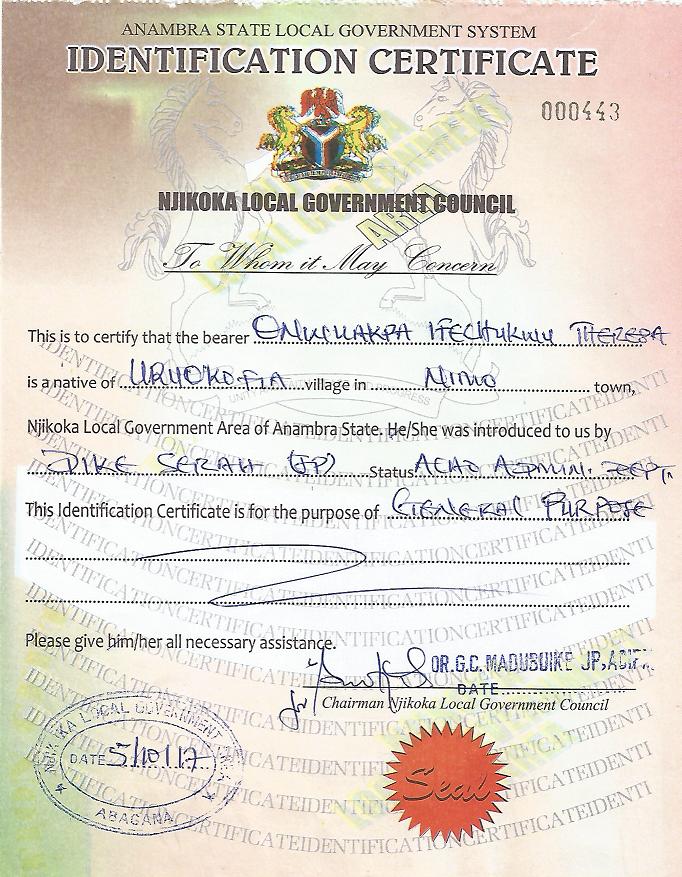 ANAMBRA STATE LOCAL GOVERNMENT SYSTEM
IDENTIFICATION CERTIFICATE
000443
NJIKOKA LOCAL GOVERNMENT COUNCIL
To Whom it May Concern
This is to certify that the bearer ONWUAKPA IFECHUKWU THERESA
is a native of URUOKOFIA village in NIMO town,
Njikoka Local Government Area of Anambra State. He/She was introduced to us by
DIKE SERAH (JP) Status AEHO ADMIN. DEPT.
This Identification Certificate is for the purpose of GENERAL PURPOSE
Please give him/her all necessary assistance.
DR.G.C. MADUBUIKE JP,
DATE
Chairman Njikoka Local Government Council
NJIKOKA LOCAL GOVERNMENT
DATE 5/10/17
ABAGANA
Seal